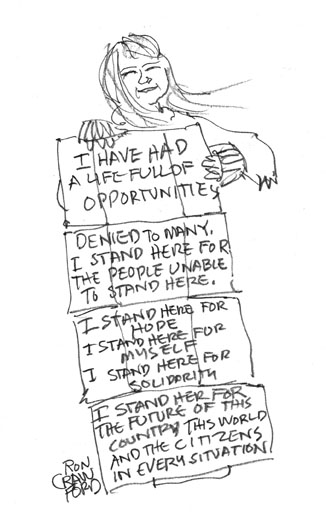 I HAVE HAD
A LIFE FULL OF
OPPORTUNITIES
DENIED TO MANY.
I STAND HERE FOR
THE PEOPLE UNABLE
TO STAND HERE.
I STAND HERE FOR
HOPE
I STAND HERE FOR
MYSELF
I STAND HERE FOR
SOLIDARITY
I STAND HER FOR
THE FUTURE OF THIS
COUNTRY THIS WORLD
AND THE CITIZENS
IN EVERY SITUATION
RON
CRAW
FORD